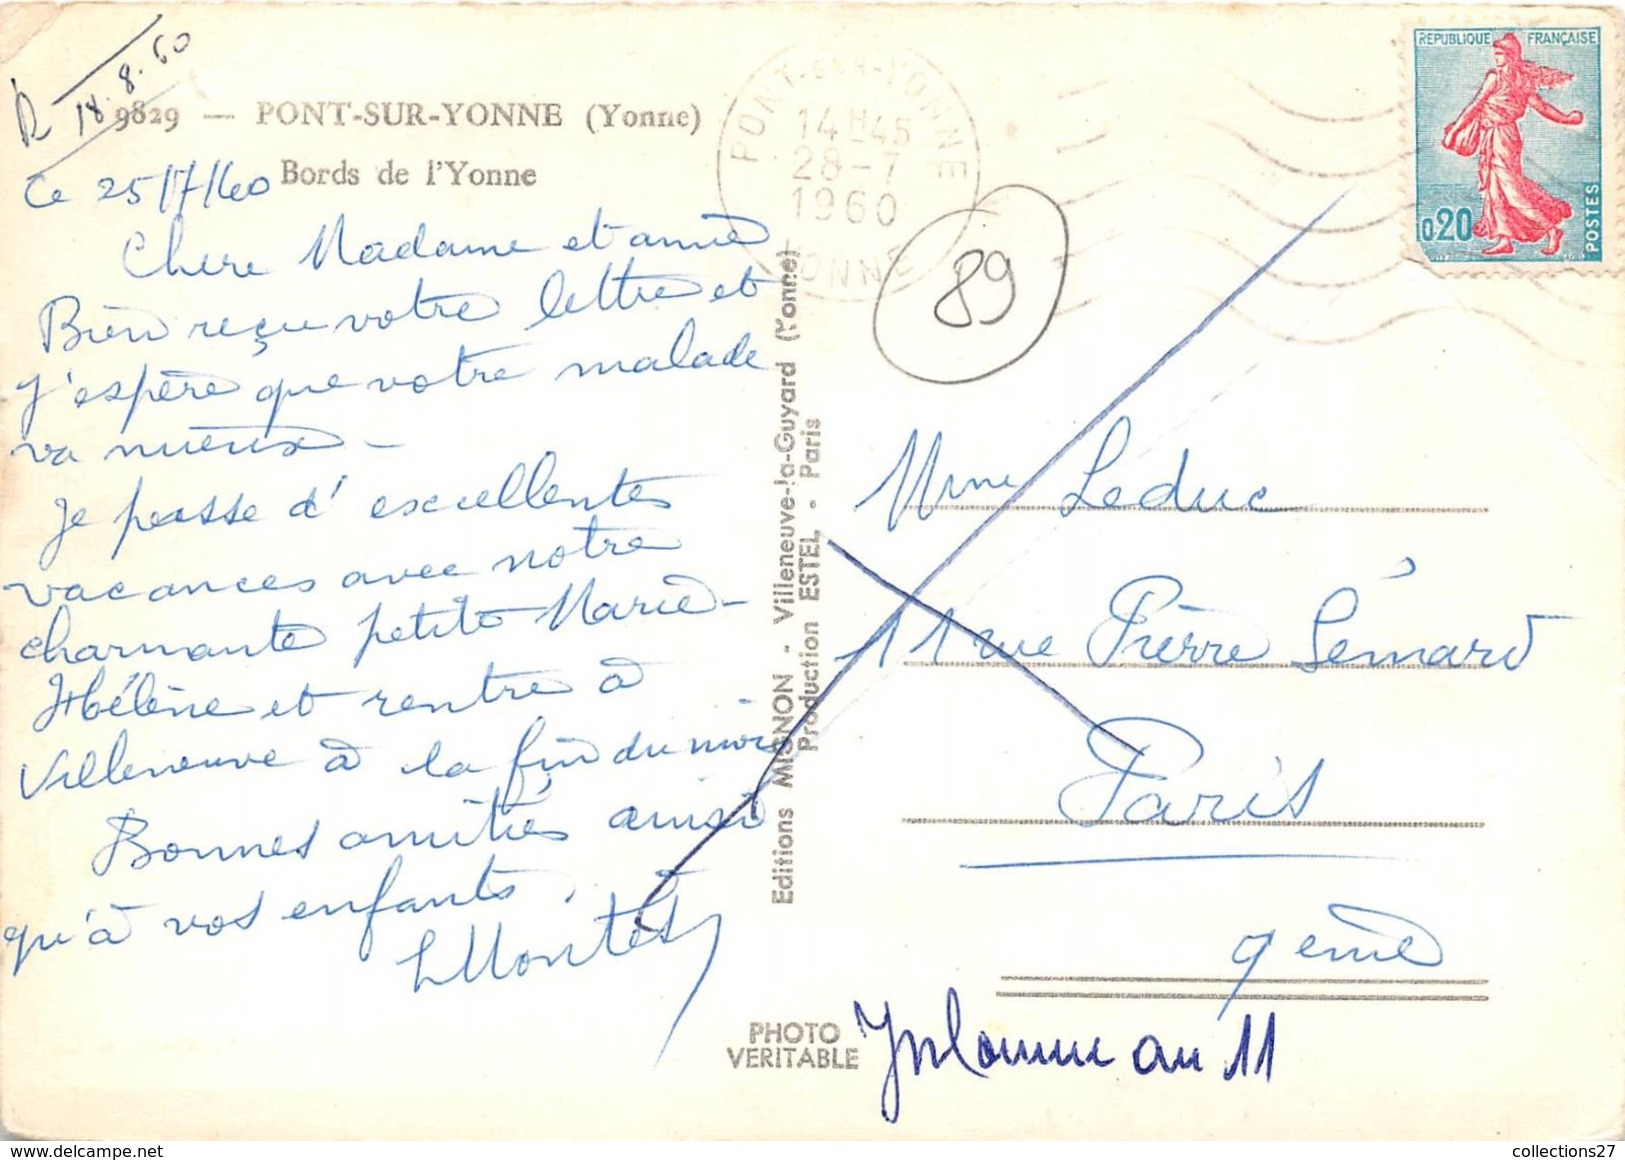 R 18.8.60
9829 — PONT-SUR-YONNE (Yonne)
Bords de l'Yonne
Ce 25/7/60
Chère Madame et amie
Bien reçu votre lettre et
j'espère que votre malade
va mieux -
Je passe d'excellentes
vacances avec notre
charmante petite Marie-
Hélène et rentre à
Villeneuve à la fin du mois
Bonnes amitiés ainsi
qu'à vos enfants.
PONT-SUR-YONNE
14H45
28-7
1960
YONNE
89
REPUBLIQUE FRANÇAISE
0,20
POSTES
Editions MIGNON - Villeneuve-la-Guyard (Yonne)
Production ESTEL - Paris
Mme Leduc
11 rue Pierre Sémard
Paris
9eme
PHOTO
VERITABLE
Inconnue au 11
collections27